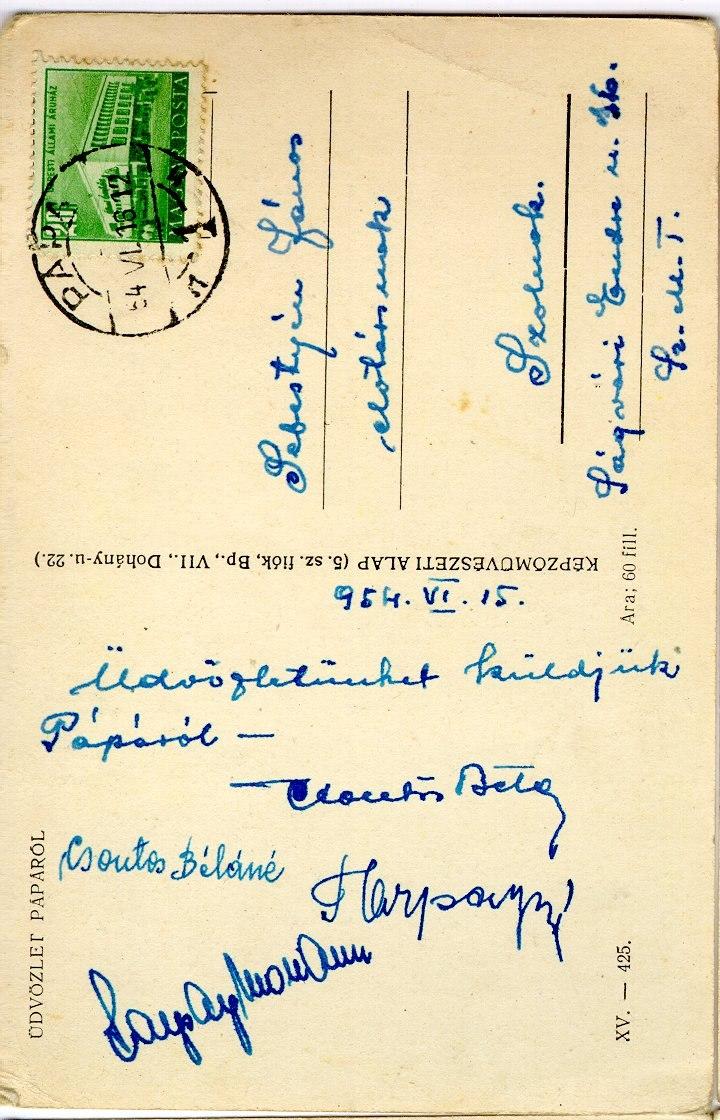 PESTI ÁLLAMI ÁRUHÁZ
MAGYAR POSTA
PÁPA 1
54 VI. 16 12
Sebestyén János
előtársnak
Szolnok.
Ságvári Endre u. 36.
Sz. M. T.
KÉPZŐMŰVÉSZETI ALAP (5. sz. fiók, Bp., VII., Dohány-u. 22.)
Ára: 60 fill.
954. VI. 15.
Üdvözletünket küldjük
Pápáról —
Csontos Béla
Csontos Béláné
ÜDVÖZLET PÁPÁRÓL
XV. — 425.